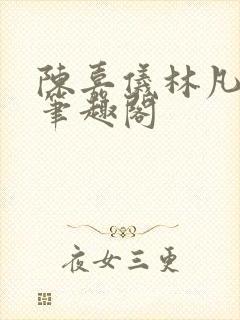 陳喜儀林凡
筆趣閣
夜女三更